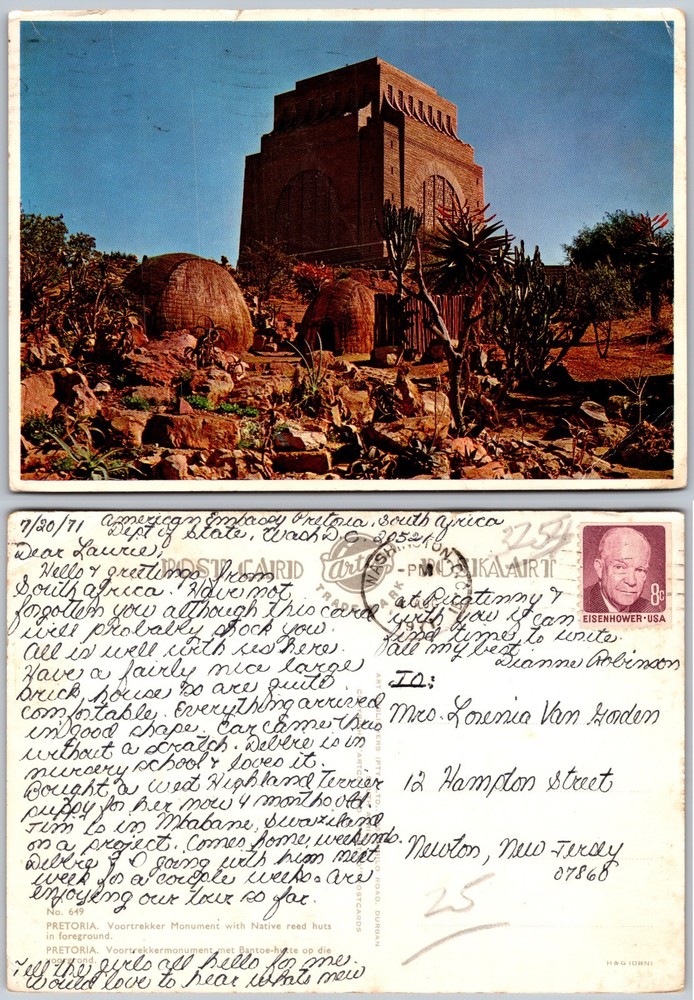 7/20/71 American Embassy Pretoria, South Africa
Dept of State, Wash D.C. 20521
Dear Laurie,
Hello & greetings from
South Africa. Have not
forgotten you although this card
will probably shock you.
All is well with us here.
Have a fairly nice large
brick house so are quite
comfortable. Everything arrived
in good shape. Car came thru
without a scratch. Debbie is in
nursery school & loves it.
Bought a West Highland Terrier
puppy for her now 4 months old.
Jim is in Mbabane, Swaziland
on a project. Comes home weekends.
Debbie & I going with him next
week for a couple weeks. Are
enjoying our tour so far.
Tell the girls all hello for me.
Would love to hear whats new
at Picatinny &
with you if can
find time to write.
All my best
Dianne Robinson
POST CARD
Art
TRADE MARK
POSKAART
WASHINGTON
PM
1971
EISENHOWER·USA
8c
3254
To:
Mrs. Lorenia Van Gorden
12 Hampton Street
Newton, New Jersey
07860
25
No. 649
PRETORIA. Voortrekker Monument with Native reed huts
in foreground.
PRETORIA. Voortrekkermonument met Bantoe-hutte op die
voorgrond.
ROAD, DURBAN
POSTCARDS
H & G (DBN)